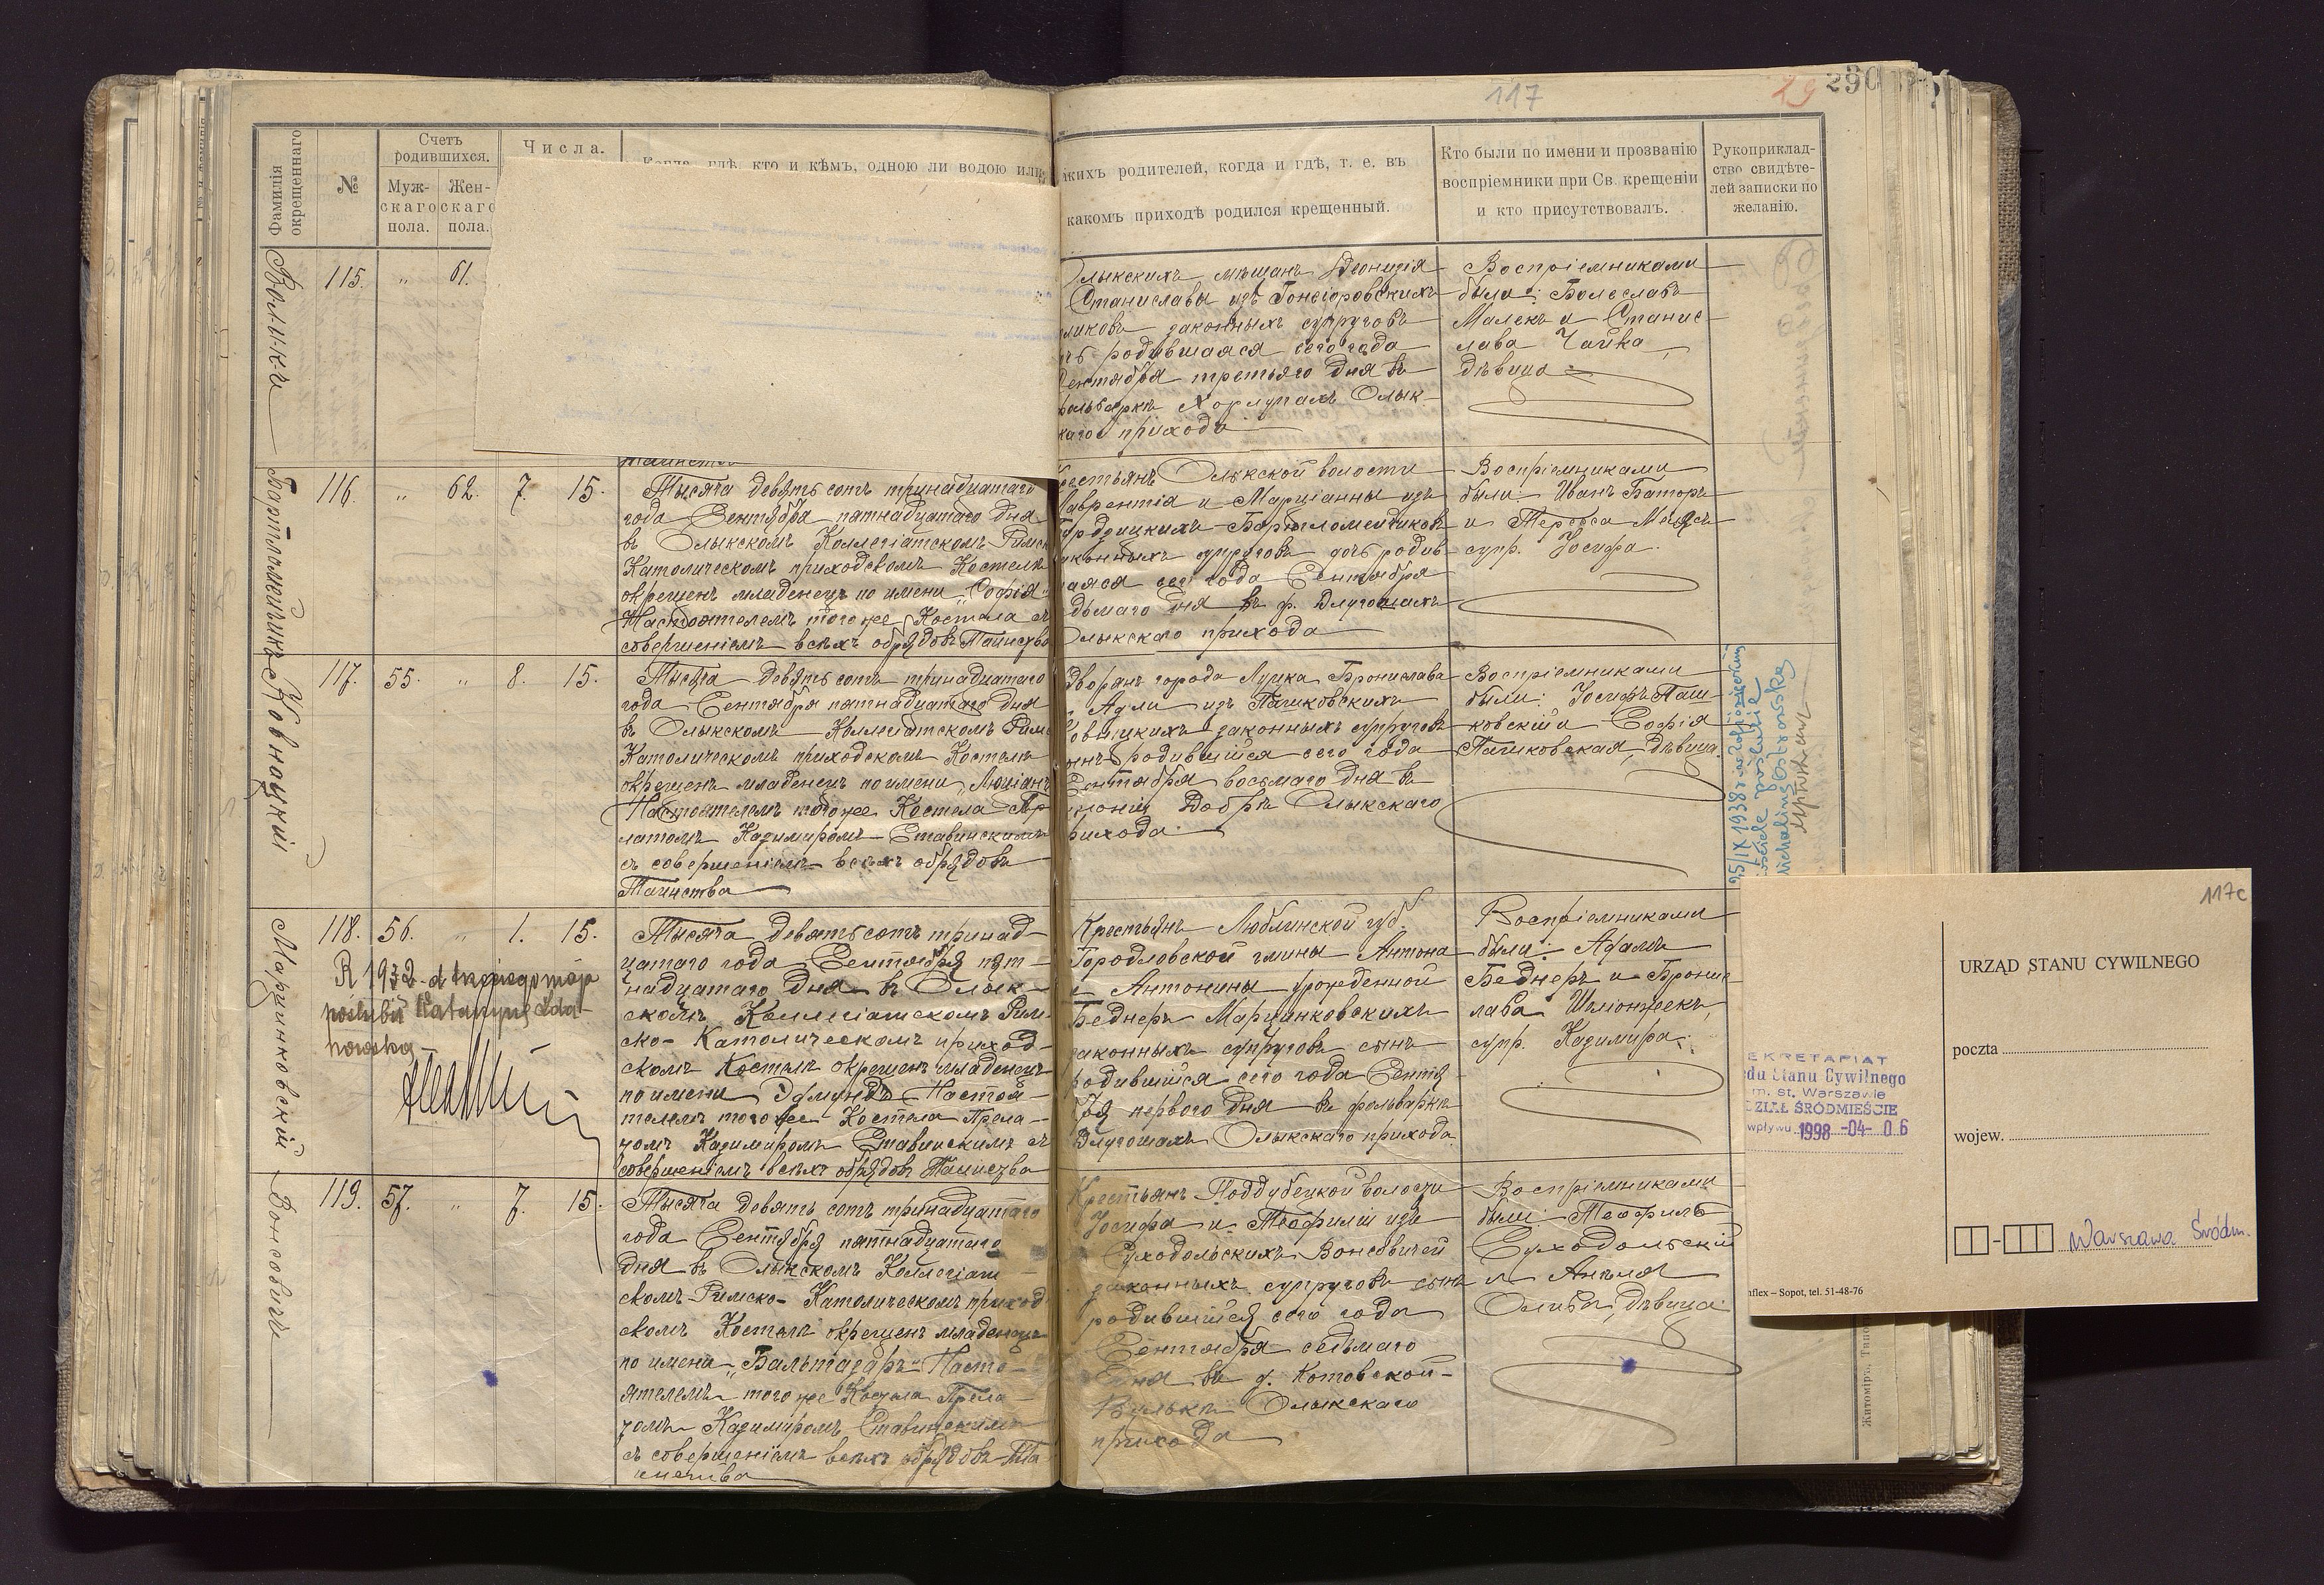 117
29
290
Фамилія окрещеннаго
№
Счетъ родившихся.
Муж-
скаго
пола.
Жен-
скаго
пола.
Числа.
Когда, гдѣ, кто и кѣмъ, одною ли водою или
кихъ родителей, когда и гдѣ, т. е. въ
какомъ приходѣ родился крещенный.
Кто были по имени и прозванію
воспріемники при Св. крещеніи
и кто присутствовалъ.
Рукоприклад-
ство свидѣте-
лей записки по
желанію.
115.
"
61.
лыкскихъ мѣщанъ
Станиславы изъ
законныхъ супруговъ
родившаяся сего года
ентября третьяго дня въ
Олык-
прихода
Воспріемниками
были: Болеславъ
Малекъ и Станис-
лава Чайка,
дѣвица
116.
"
62.
7.
15.
Тысяча девятьсотъ тринадцатаго
года Сентября пятнадцатаго дня
въ Олыкскомъ Коллегіатскомъ Римск
Католическомъ приходскомъ Костелѣ
окрещенъ младенецъ по имени „София"
Настоятелемъ того же Костела съ
совершеніемъ всѣхъ обрядовъ Таинства
рестьянъ Олыкской волости
аврентія и Марціанны изъ
аконныхъ супруговъ дочь родив
аяся сего года Сентября
дьмаго дня въ ф. Длугошахъ
Олыкскаго прихода
Воспріемниками
были: Иванъ Баторъ
и Тереса
супр. Іосифа.
Ковнацкій
117.
55.
"
8.
15.
Тысяча девятьсотъ тринадцатаго
года Сентября пятнадцатаго дня
въ Олыкскомъ Коллегіатскомъ Римс
Католическомъ приходскомъ Костелѣ
окрещенъ младенецъ по имени „Люціанъ
Настоятелемъ того же Костела Пре
латомъ Казимиромъ Ставинскимъ
съ совершеніемъ всѣхъ обрядовъ
Таинства
дворянъ города Луцка Бронислава
Адели изъ Пашковскихъ
овнацкихъ законныхъ супруговъ
ынъ родившійся сего года
Сентября восьмаго дня въ
Олыкскаго
рихода
Воспріемниками
были: Іосифъ Паш-
ковскій и Софія
Пашковская, дѣвица
25/IX 1938 r.
kościele poślubił
Michalinę Ostrowską
Марцинковскій
118.
56.
"
1.
15.
R 1932
poślubił Katarzynę
Тысяча девятьсотъ тринад-
цатаго года Сентября пят-
надцатаго дня въ Олык-
скомъ Коллегіатскомъ Рим-
ско-Католическомъ приход-
скомъ Костелѣ окрещенъ младенецъ
по имени „Эдмундъ" Настоя-
телемъ того же Костела Прела-
томъ Казимиромъ Ставинскимъ съ
совершеніемъ всѣхъ обрядовъ Таинства
Крестьянъ Люблинской губ.
Городловской гмины Антона
и Антонины урожденной
Беднеръ Марцинковскихъ
законныхъ супруговъ сынъ
родившійся сего года Сентя-
бря перваго дня въ фольваркѣ
Длугошахъ Олыкскаго прихода.
Воспріемниками
были: Адамъ
Беднеръ и Бронис-
лава
супр. Казимира.
Вонсовичъ
119.
57.
"
7.
15.
Тысяча девять сотъ тринадцатаго
года Сентября пятнадцатаго
дня въ Олыкскомъ Коллегіат-
скомъ Римско-Католическомъ приход
скомъ Костелѣ окрещенъ младенецъ
по имени „Бальтазаръ" Насто-
ятелемъ того же Костела Прела-
томъ Казимиромъ Ставинскимъ
съ совершеніемъ всѣхъ обрядовъ Та-
инства
Крестьянъ Поддубецкой волости
Іосифа и Теофиліи изъ
Суходольскихъ Вонсовичей
законныхъ супруговъ сынъ
родившійся сего года
Сентября седьмаго
дня въ д. Котовской-
Волькѣ Олыкскаго
прихода
Воспріемниками
были: Теофилъ
Суходольскій
и Анѣля
Олиба, дѣвица
117c
URZĄD STANU CYWILNEGO
poczta
wojew.
Warszawa Śródm.
EKRETARIAT
du Stanu Cywilnego
m. st. Warszawie
DZIAŁ ŚRÓDMIEŚCIE
wpływu 1998 -04- 06
flex – Sopot, tel. 51-48-76